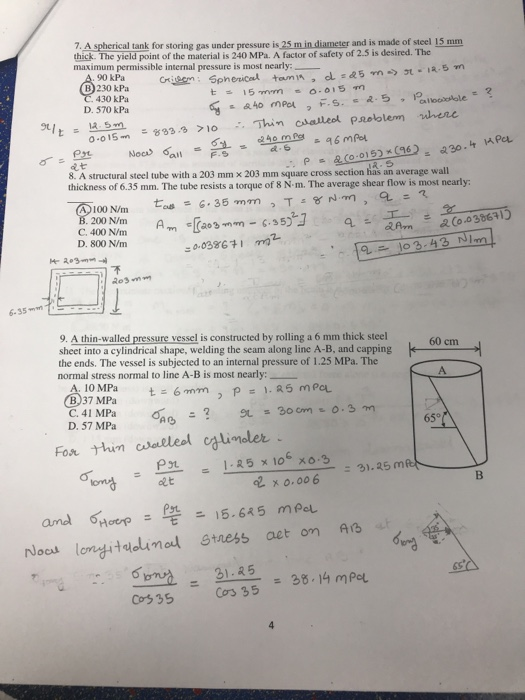 7. A spherical tank for storing gas under pressure is 25 m in diameter and is made of steel 15 mm
thick. The yield point of the material is 240 MPa. A factor of safety of 2.5 is desired. The
maximum permissible internal pressure is most nearly:
A. 90 kPa
B. 230 kPa
C. 430 kPa
D. 570 kPa
Given: Spherical tank, d = 25 m => r = 12.5 m
t = 15 mm = 0.015 m
σy = 240 MPa, F.S. = 2.5, Pallowable = ?
r/t = 12.5m / 0.015m = 833.3 > 10 ∴ Thin walled problem where
σ = Pr / 2t Now σall = σy / F.S = 240 MPa / 2.5 = 96 MPa
∴ P = 2(0.015) × (96) / 12.5 = 230.4 KPa
8. A structural steel tube with a 203 mm x 203 mm square cross section has an average wall
thickness of 6.35 mm. The tube resists a torque of 8 N·m. The average shear flow is most nearly:
A. 100 N/m
B. 200 N/m
C. 400 N/m
D. 800 N/m
= 6.35 mm, T = 8 N·m, q = ?
Am = [(203 mm - 6.35)²]
= 0.038671 m²
q = T / 2Am = 8 / 2(0.038671)
q = 103.43 N/m
203mm
203mm
6.35mm
9. A thin-walled pressure vessel is constructed by rolling a 6 mm thick steel
sheet into a cylindrical shape, welding the seam along line A-B, and capping
the ends. The vessel is subjected to an internal pressure of 1.25 MPa. The
normal stress normal to line A-B is most nearly:
A. 10 MPa
B. 37 MPa
C. 41 MPa
D. 57 MPa
60 cm
A
65°
B
t = 6mm, P = 1.25 MPa
σAB = ? r = 30cm = 0.3 m
For thin walled cylinder.
σlong = Pr / 2t = 1.25 × 10⁶ × 0.3 / 2 × 0.006 = 31.25 MPa
and σHoop = Pr / t = 15.625 MPa
Now longitudinal stress act on AB
∴ σlong / cos 35 = 31.25 / cos 35 = 38.14 MPa
σlong
65°
4